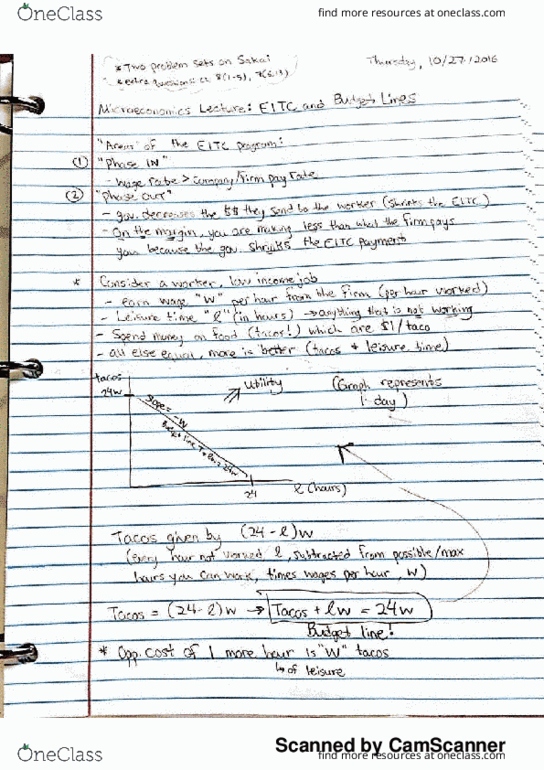 OneClass
find more resources at oneclass.com
* Two problem sets on Sakai
* extra questions: ch 8(1-5), 7(6,13)
Thursday, 10/27/2016
Microeconomics Lecture: EITC and Budget Lines
"Areas" of the EITC program:
① "Phase IN"
- wage rate > company/firm pay rate
② "Phase OUT"
- gov. decreases the $$ they send to the worker (shrinks the EITC)
- On the margin, you are making less than what the firm pays
you because the gov. shrinks the EITC payments
* Consider a worker, low income job
- earn wage "W" per hour from the firm (per hour worked)
- Leisure time "l" (in hours) → anything that is not working
- Spend money on food (tacos!) which are $1/taco
- all else equal, more is better (tacos + leisure time)
tacos
24w
Slope = -W
Utility
(Graph represents
1 day)
24
l (hours)
Tacos given by (24 - l)W
(Every hour not worked l, subtracted from possible/max
hours you can work, times wages per hour, W)
Tacos = (24 - l)w → Tacos + lw = 24w
Budget line!
* Opp. cost of 1 more hour is "W" tacos
↳ of leisure
Scanned by CamScanner
OneClass
find more resources at oneclass.com